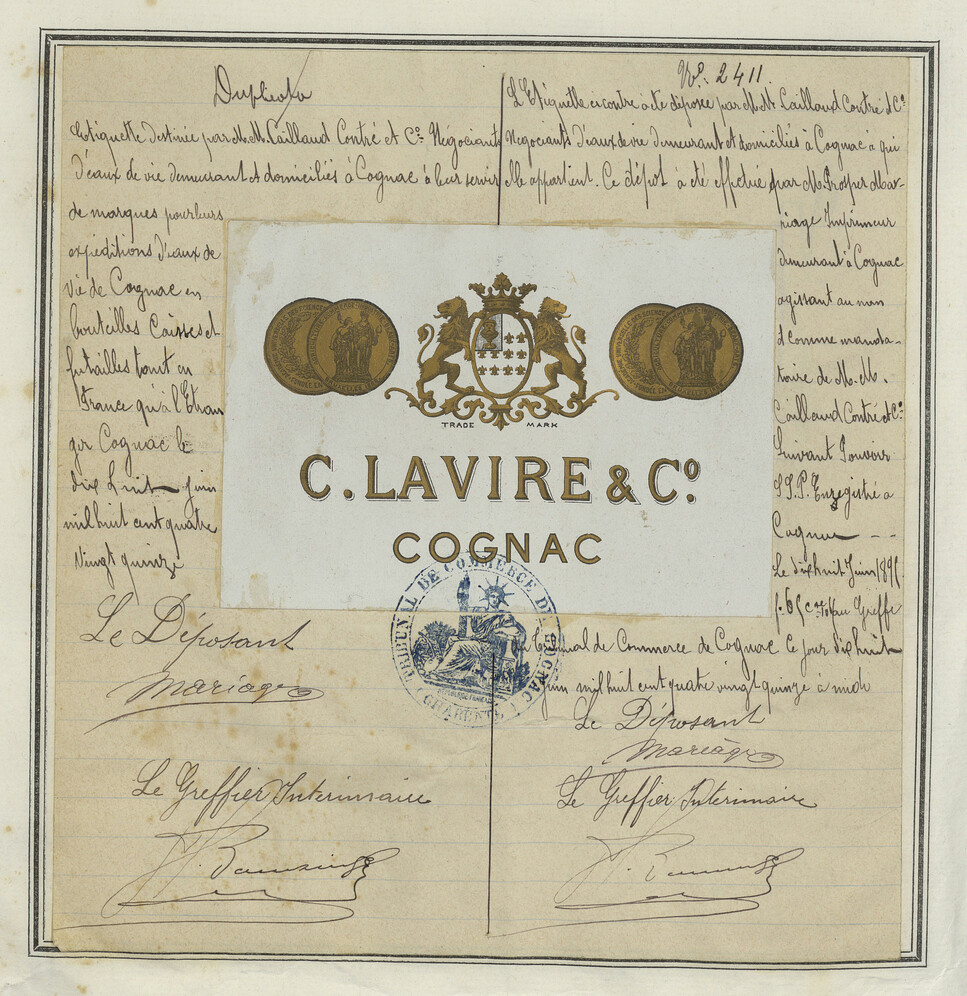 Duplicata
Etiquette destinée par M.M. Caillaud Contré et Cº. Négociants
d'eaux de vie demeurant et domiciliés à Cognac à leur servir
de marques pour leurs
expéditions d'eaux de
vie de Cognac en
bouteilles Caisses et
futailles tant en
France qu'à l'Etran
ger Cognac le
dix huit Juin
mil huit cent quatre
vingt quinze
Le Déposant
Mariage
Le Greffier Interimaire
Nº. 2411.
L'Etiquette ci contre a été déposée par M.M. Caillaud Contré & Cº
Négociants d'eaux de vie demeurant et domiciliés à Cognac a qui
elle appartient. Ce dépot à été effectué par M. Prosper Mar-
riage Imprimeur
demeurant à Cognac
agissant au nom
et comme manda-
taire de M.M.
Caillaud Contré et Cº
Suivant Pouvoir
S.S.P. Enregistré à
Cognac - -
Le dix huit Juin 1895
au Greffe
du Tribunal de Commerce de Cognac ce jour dix huit
Juin mil huit cent quatre vingt quinze à midi
Le Déposant
Mariage
Le Greffier Interimaire
TRADE MARK
C. LAVIRE & Cº.
COGNAC
TRIBUNAL DE COMMERCE DE COGNAC
(CHARENTE)